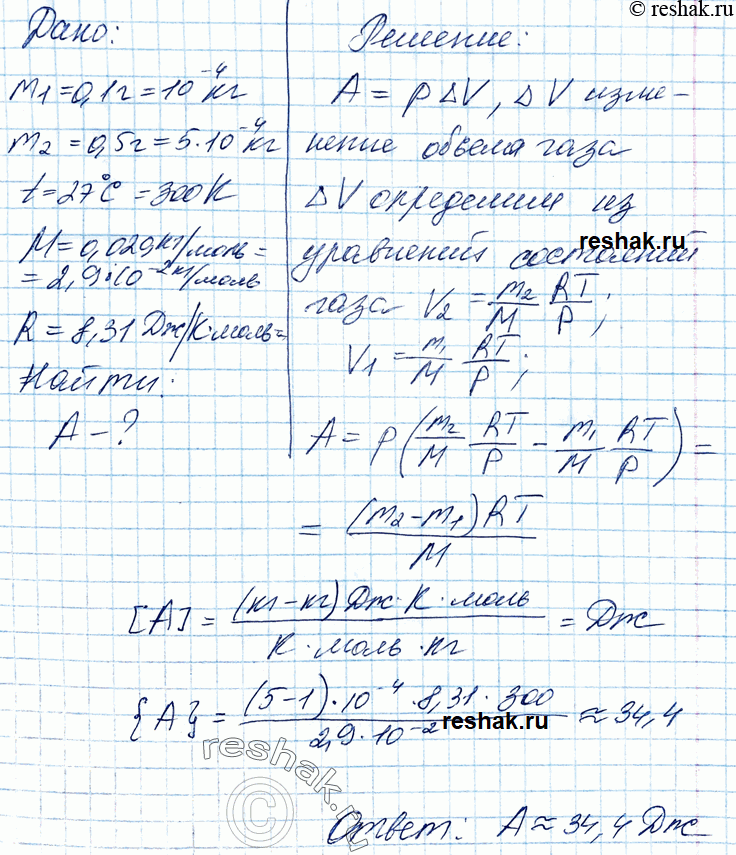 © reshak.ru
Дано:
m₁=0,1г=10⁻⁴кг
m₂=0,5г=5·10⁻⁴кг
t=27°C=300K
M=0,029кг/моль=
=2,9·10⁻²кг/моль
R=8,31 Дж/К·моль=
Найти:
A-?
Решение:
A=pΔV, ΔV изме-
нение объема газа
ΔV определим из
reshak.ru
уравнений состояний
газа V₂=m₂/M RT/P;
V₁=m₁/M RT/P;
A=p(m₂/M RT/P - m₁/M RT/P)=
=(m₂-m₁)RT/M
[A]=(кг-кг)Дж·К·моль/К·моль·кг=Дж
{A}=(5-1)·10⁻⁴·8,31·300/2,9·10⁻²≈34,4
reshak.ru
reshak.ru
©
Ответ: A≈34,4 Дж